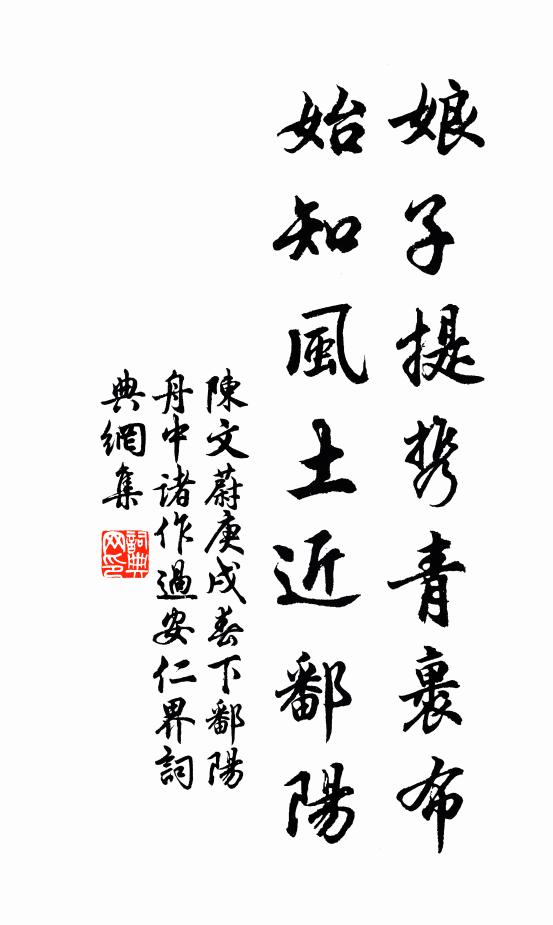 娘子提携青裹布
始知風土近鄱陽
陳文蔚庚戌春下鄱陽
舟中諸作過安仁界詞
典網集
詞典网印